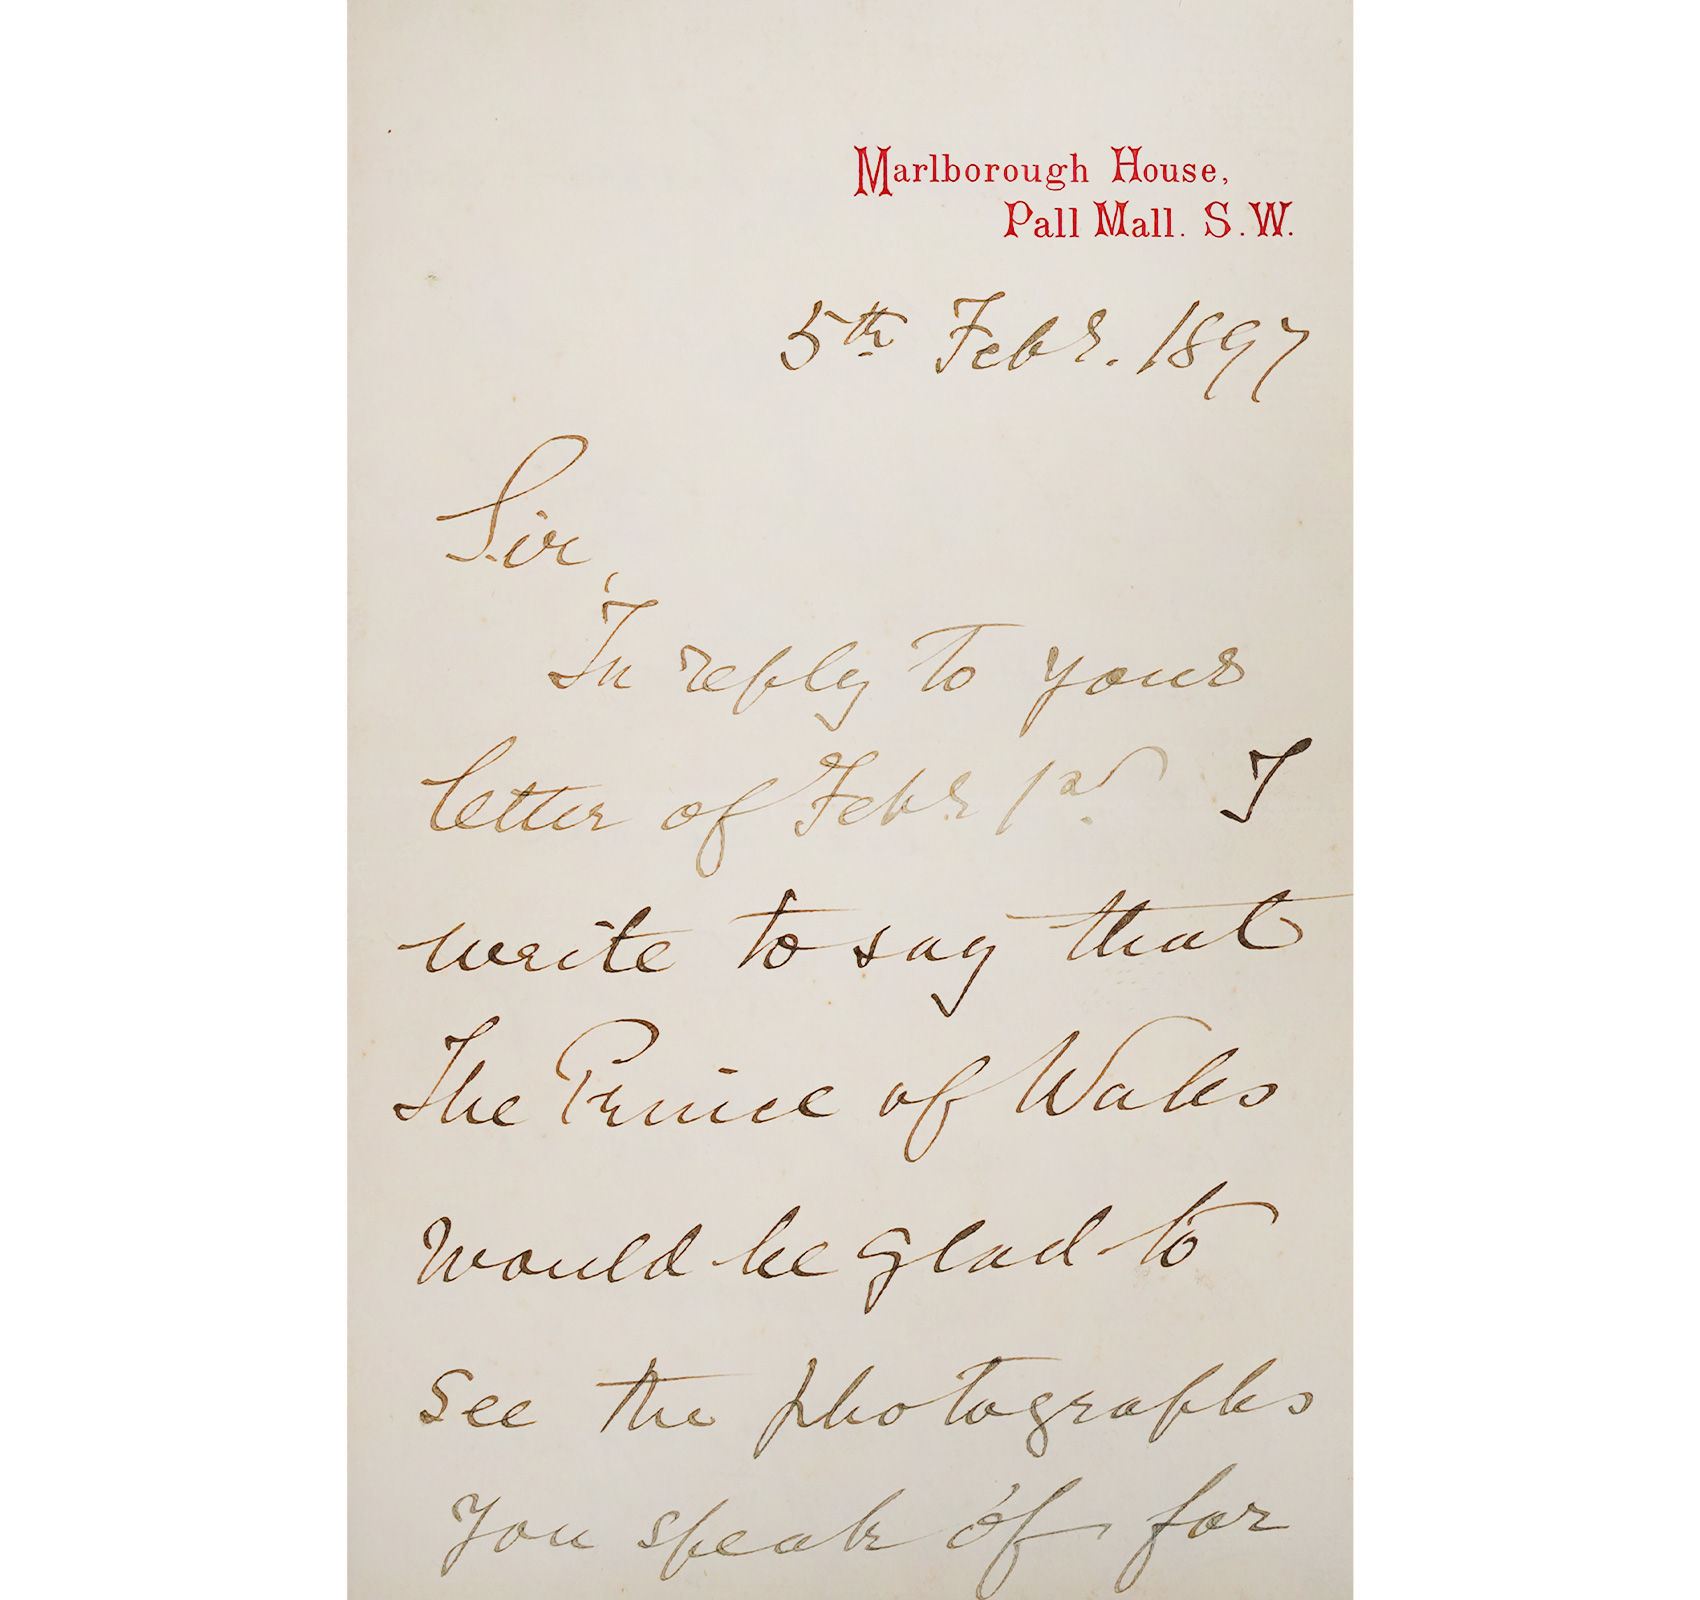 Marlborough House,
Pall Mall. S.W.
5th Febr. 1897
Sir,
In reply to your
letter of Febr. 1st I
write to say that
The Prince of Wales
would be glad to
see the photographs
you speak of for